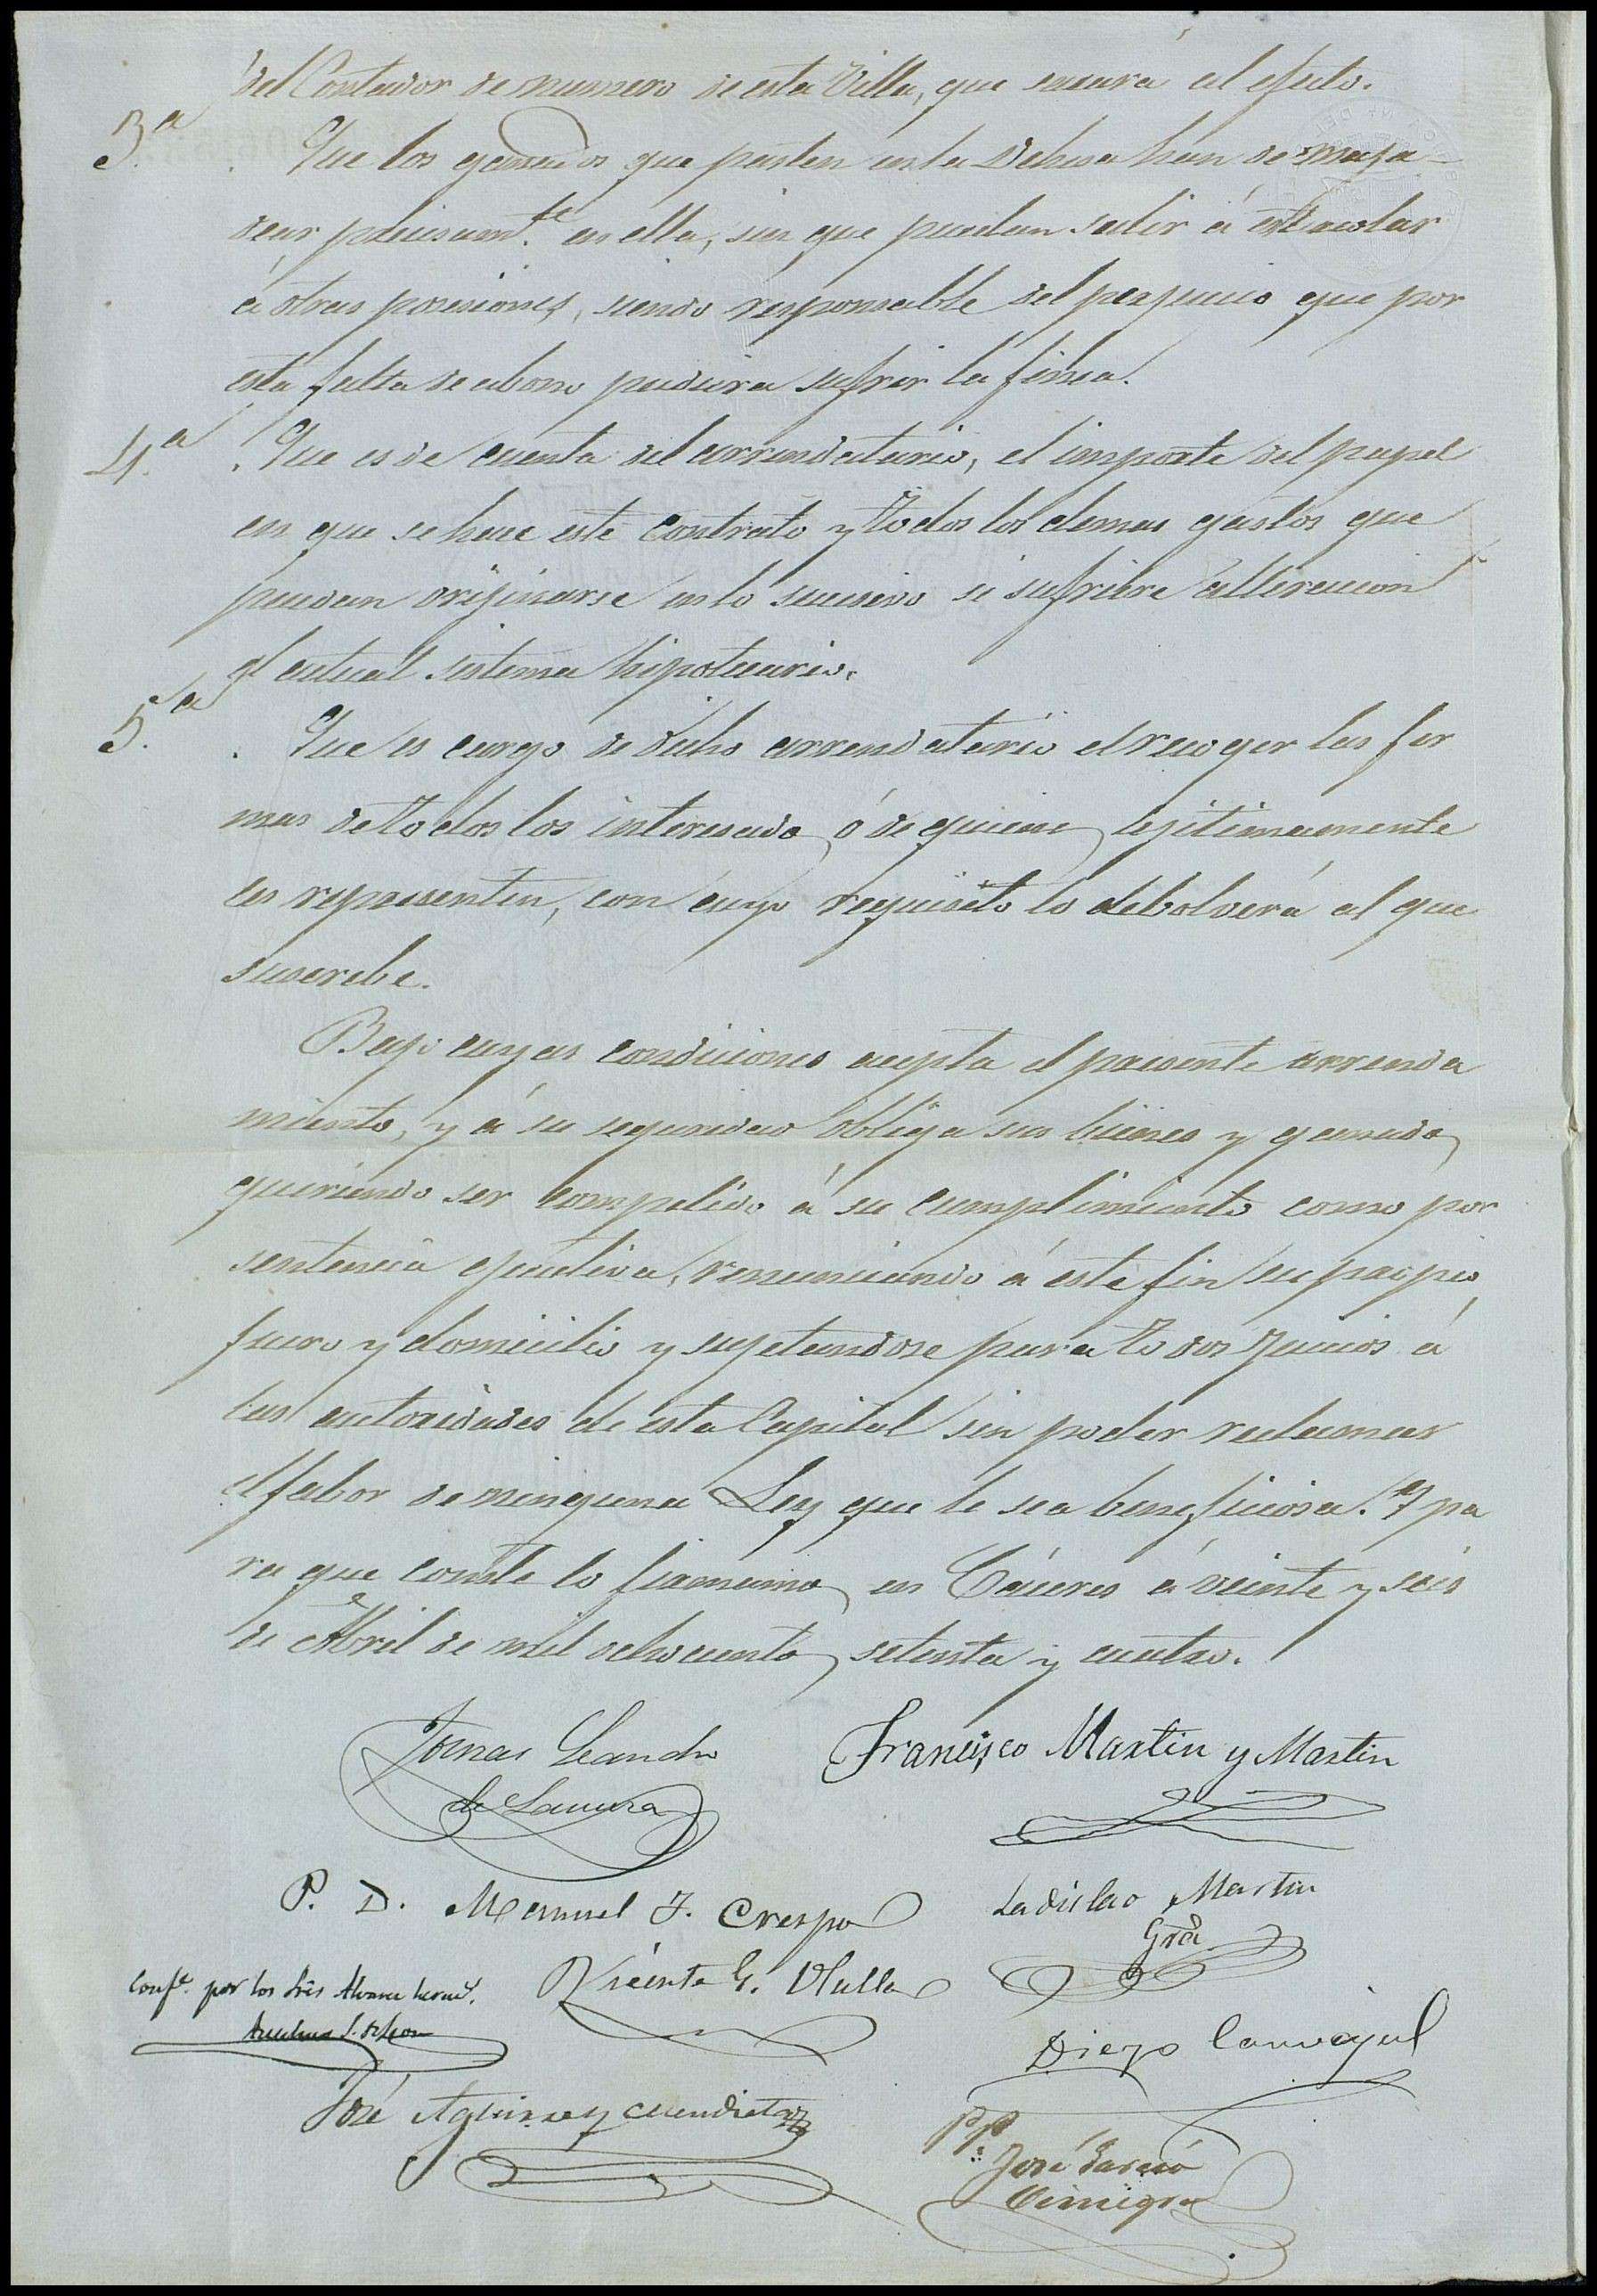 del Contador de numero de esta Villa, que sacará al efecto.
3.ª Que los ganados que pasten en la Dehesa han de maja-
dear precisam.te en ella, sin que puedan salir á estacolar
á otras posesiones, siendo responsable del perjuicio que por
esta falta de abono pudiera sufrir la finca.
4.ª Que es de cuenta del arrendatario, el importe del papel
en que se hace este contrato y todos los demas gastos que
puedan orijinarse en lo sucesivo si sufriere alteracion
el actual sistema hipotecario.
5.ª Que es cargo de dicho arrendatario el recoger las fir
mas de todos los interesados, ó de quienes lejitimamente
les representen, con cuyo requisito lo debolverá al que
suscrebe.
Bajo cuyas condiciones acepta el presente arrenda
miento, y á su seguridad obliga sus bienes y ganados
queriendo ser compelido á su cumplimiento como por
sentencia ejecutiva, renunciando á este fin su propio
fuero y domicilio y sujetandose para todos juicios á
las autoridades de esta Capital sin poder reclamar
el fabor de ninguna Ley que le sea beneficiosa. Y pa
ra que conste lo firmamos en Cáceres á veinte y seis
de Abril de mil ochocientos setenta y cuatro.
Tomas Leandro Francisco Martin y Martin
de
P. D. Manuel J. Crespo Ladislao Martin
Grã
Conf.e por los Sres Vicente G. Ululla
Diego Carvajal
José Aguirre y Mendieta
P.P.
José Garcia